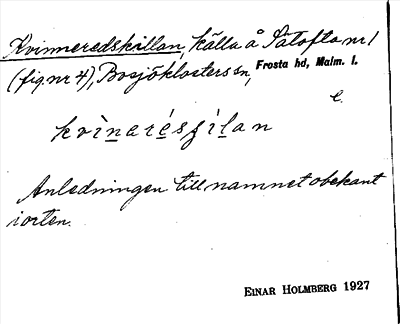 Kvinneredskillan, källa å Sätofta nr 1
(fig. nr 4), Bosjöklosters sn, Frosta hd, Malm. l.
e.
kvìnarésʒílan
Anledningen till namnet obekant
i orten.
EINAR HOLMBERG 1927